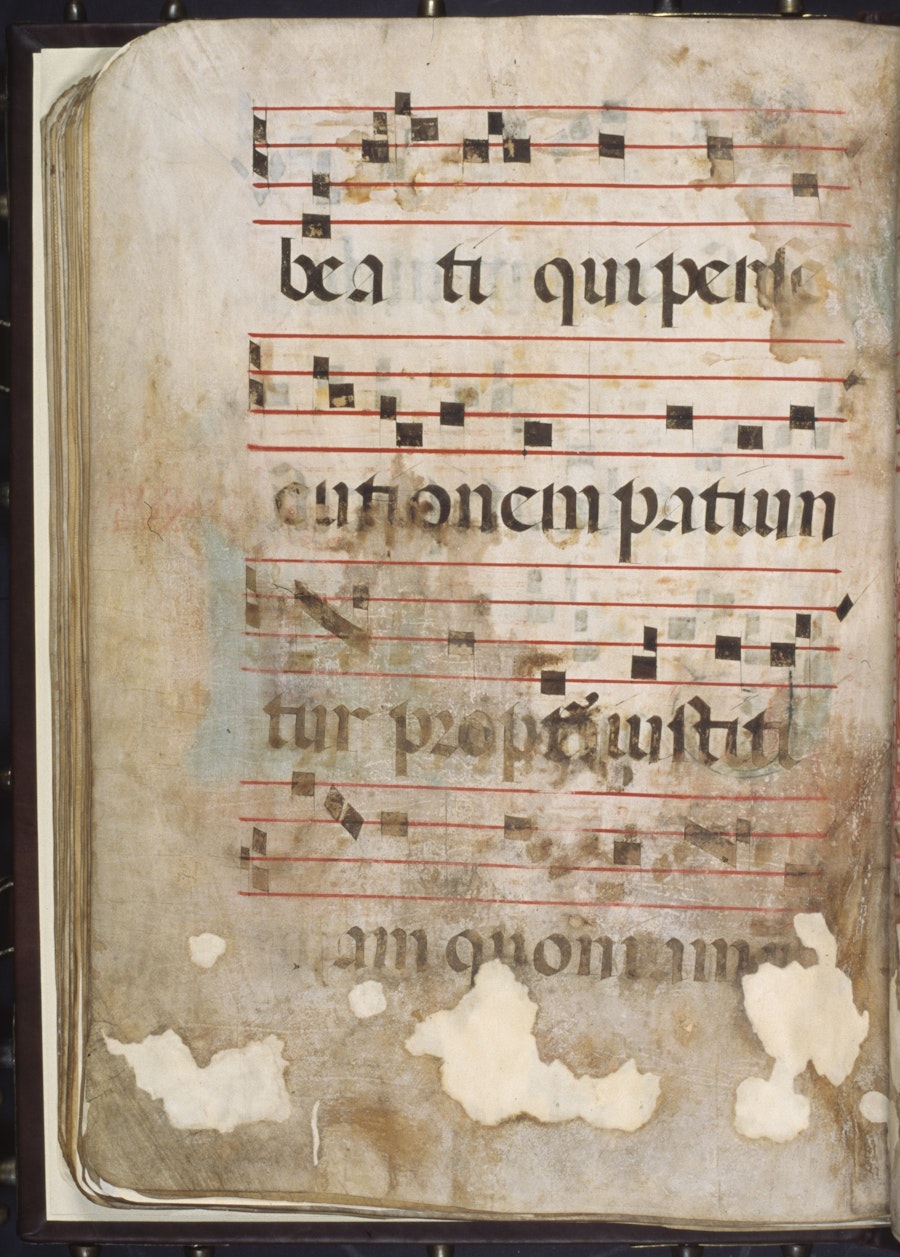 bea ti qui perse
cutionem patiun
tur propter iustiti
am quoniam